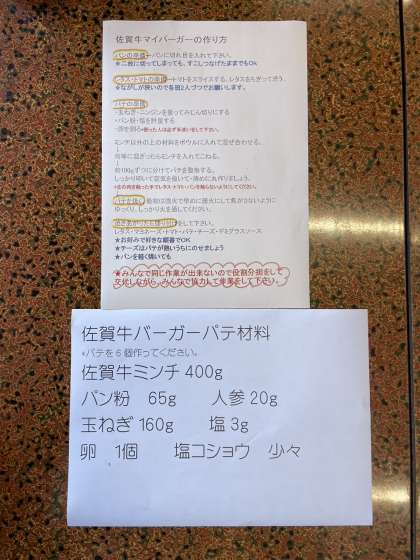 佐賀牛マイバーガーの作り方
パンの準備→パンに切れ目を入れて下さい。
★二枚に切ってしまっても、すこしつなげたままでもOk
レタス・トマトの準備→トマトをスライスする。レタスをちぎって洗う。
★ながしが狭いので各班2人づつでお願いします。
パテの準備
・玉ねぎ・ニンジンを量ってみじん切りにする
・パン粉・塩を計量する
・卵を割る→使った人は必ず手洗いをして下さい。
ミンチ以外の上の材料をボウルに入れて混ぜ合わせる。
↓
均等に混ざったらミンチを入れてこねる。
↓
約100gずつに分けてパテを整形する。
しっかり叩いて空気を抜いて・薄めに丸く作りましょう。
パテを焼く
ゆっくり、しっかり火を通してください。
レタス・マヨネーズ・トマト・パテ・チーズ・デミグラスソース
★お好みで好きな順番でOK
★チーズはパテが熱いうちにのせましょう
★パンを軽く焼いても
★みんなで同じ作業が出来ないので役割分担をして
交代しながら、みんなで協力して作業をして下さい。
佐賀牛バーガーパテ材料
*パテを6個作ってください。
佐賀牛ミンチ 400g
パン粉 65g 人参 20g
玉ねぎ 160g 塩 3g
卵 1個 塩コショウ 少々